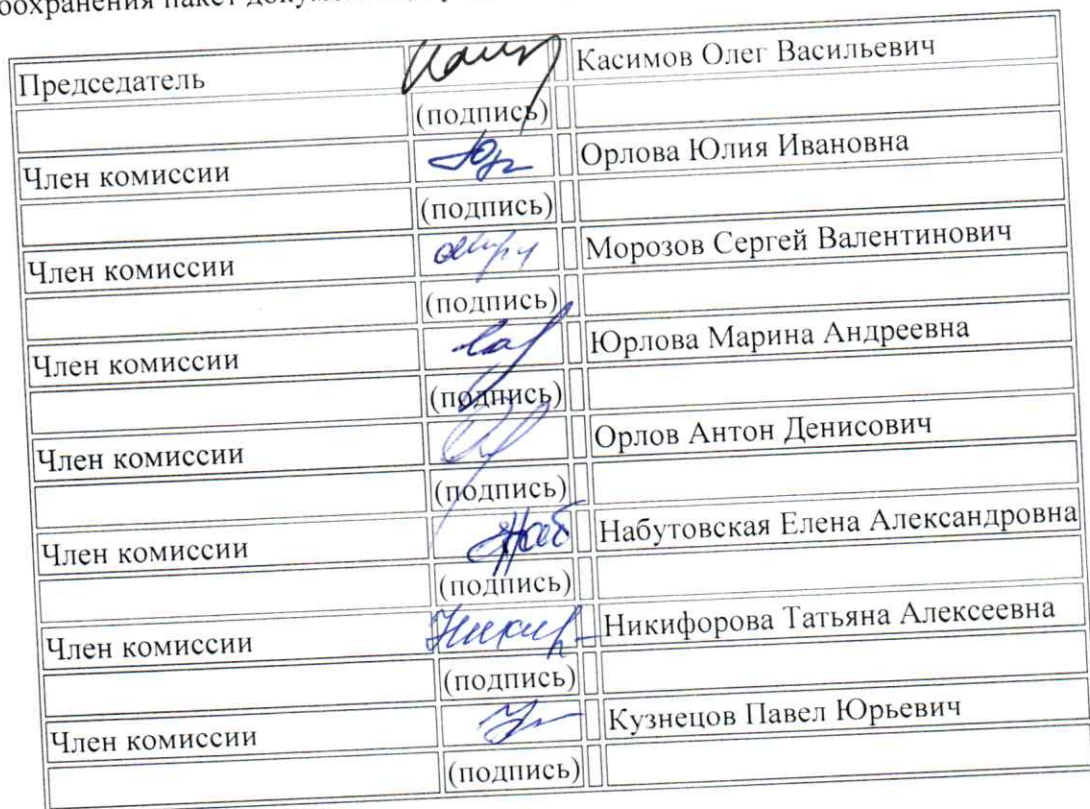 пакет
Председатель Касимов Олег Васильевич
(подпись)
Член комиссии Орлова Юлия Ивановна
(подпись)
Член комиссии Морозов Сергей Валентинович
(подпись)
Член комиссии Юрлова Марина Андреевна
(подпись)
Член комиссии Орлов Антон Денисович
(подпись)
Член комиссии Набутовская Елена Александровна
(подпись)
Член комиссии Никифорова Татьяна Алексеевна
(подпись)
Член комиссии Кузнецов Павел Юрьевич
(подпись)